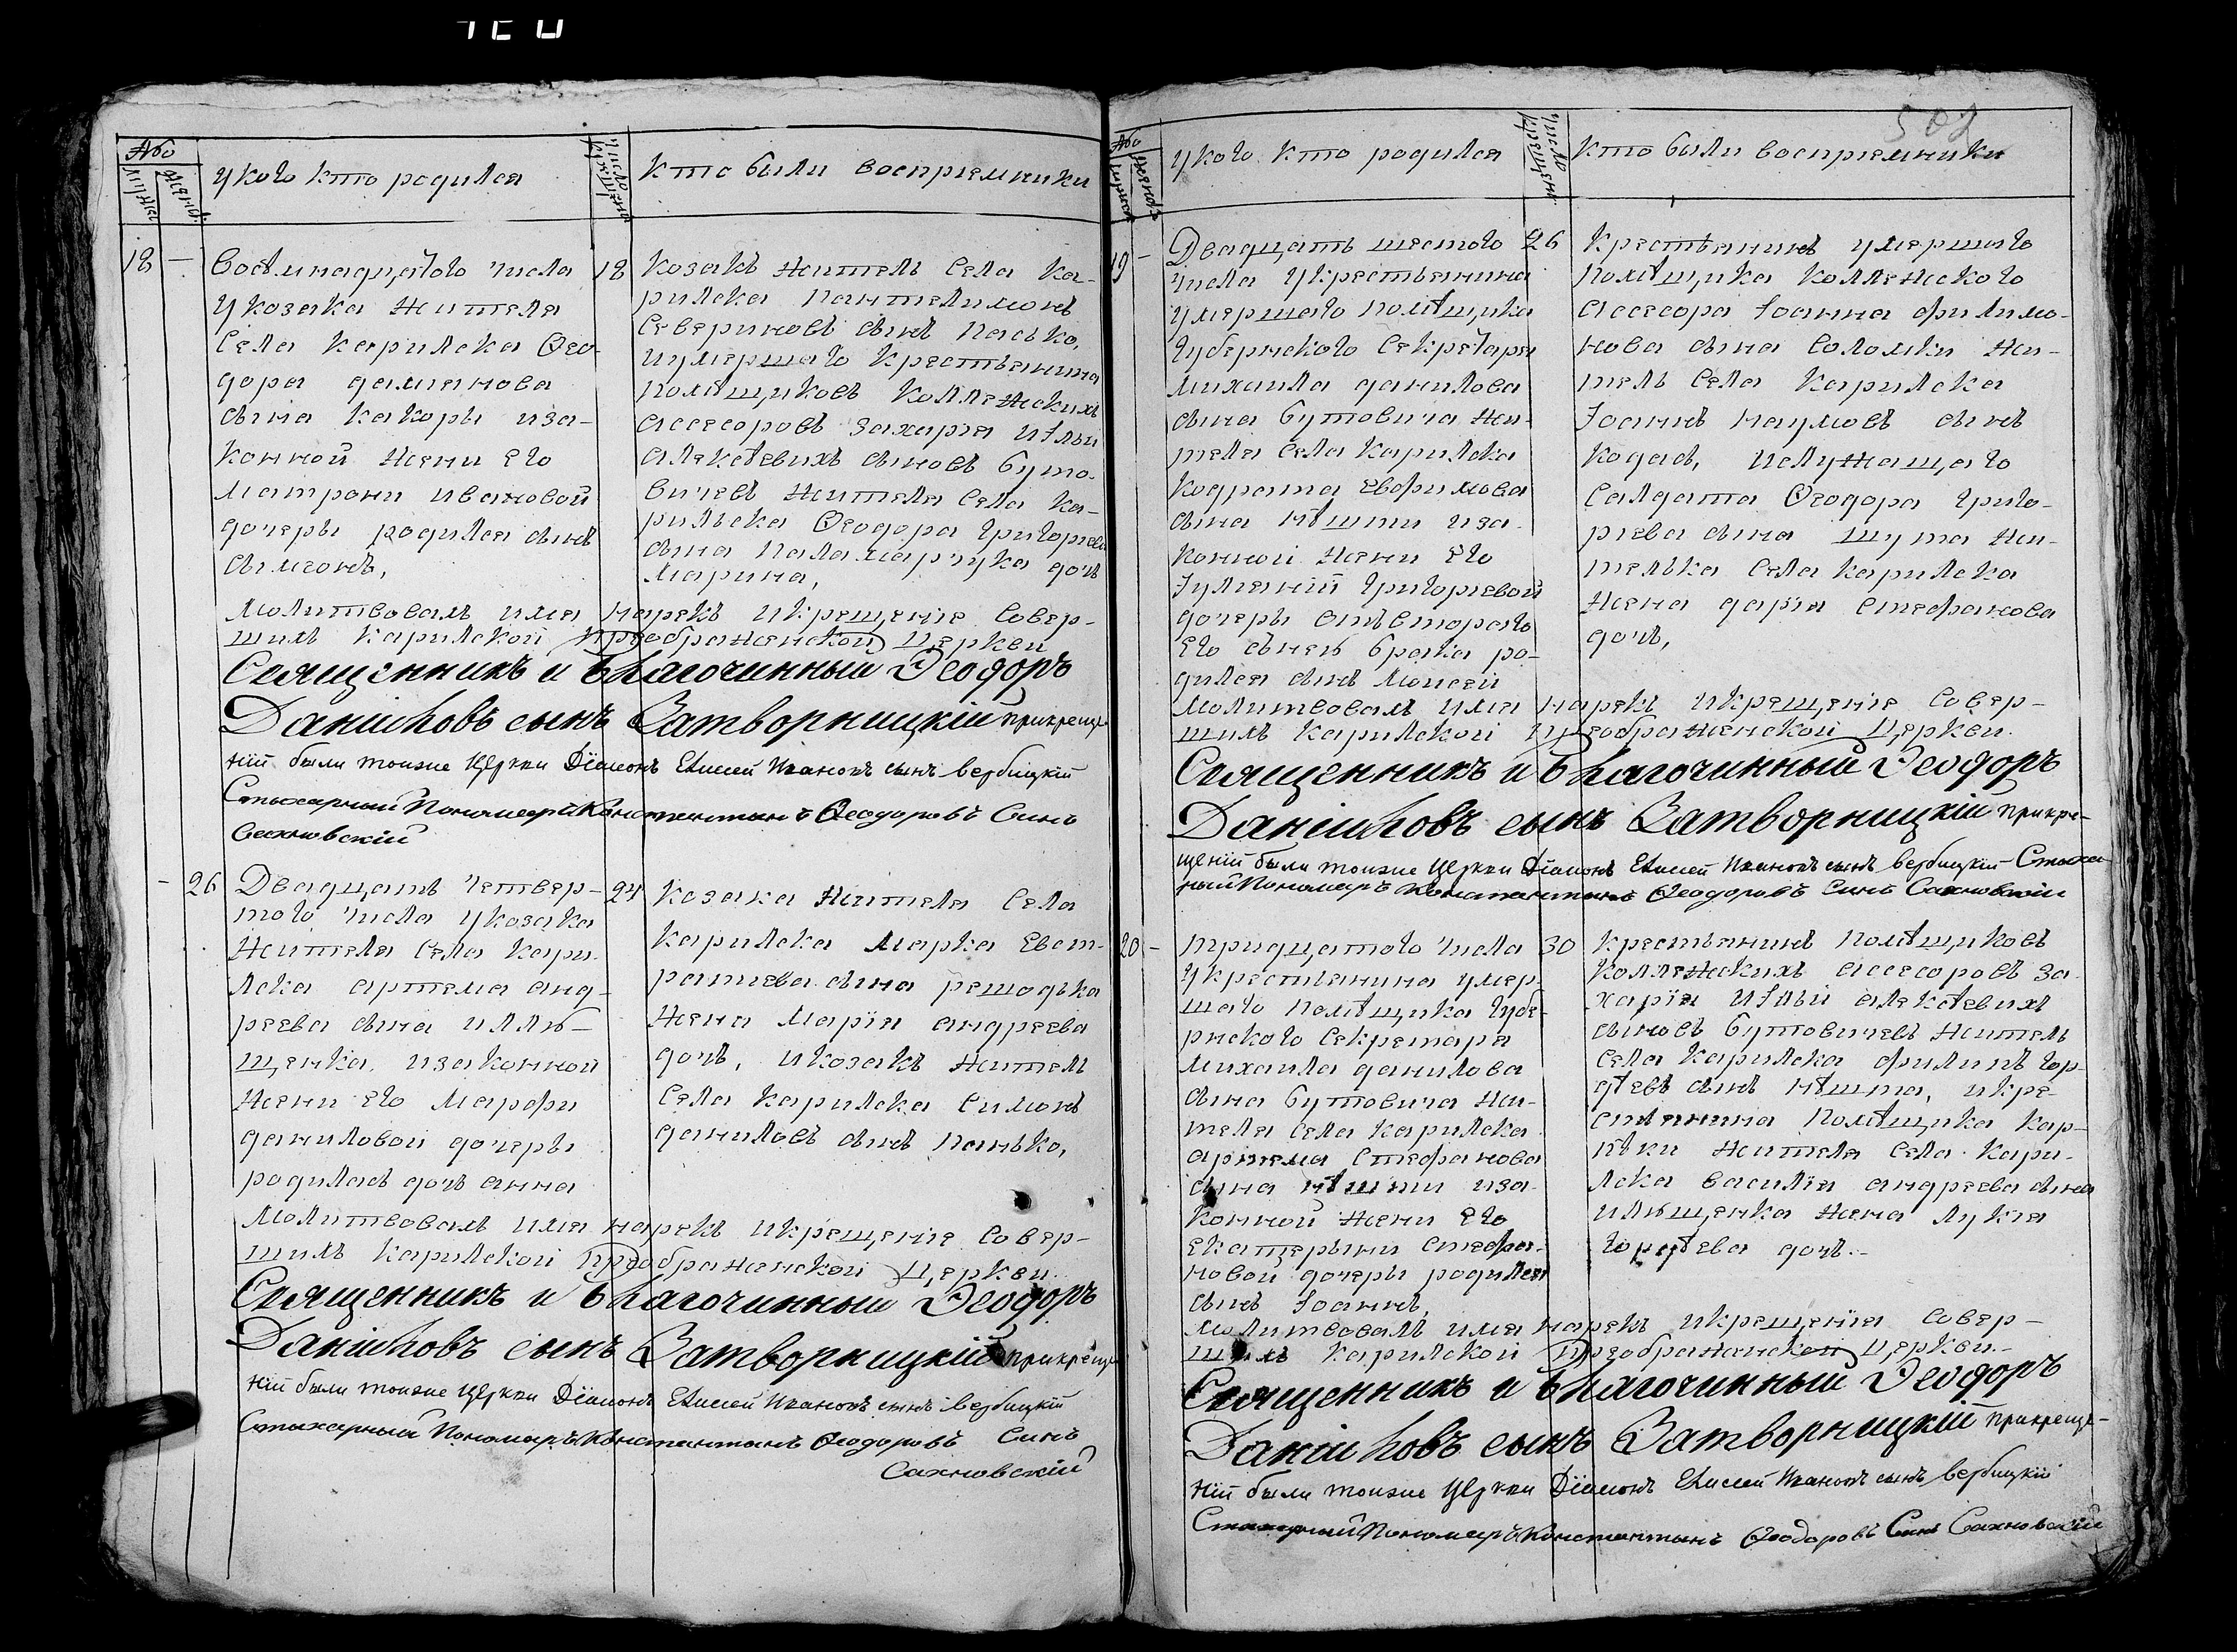 Або
мужес женск
у кого кто родился
число крещения
кто были восприемники
18 — восѣмнадцатого числа 18
у козака жителя
села Карилска Ѳео-
дора дамианова
сына Какоры иза-
конной жени его
матрони ивановой
дочеры родился сынъ
сѵмеонъ,
козакъ житель села ка-
рилска пантелимонъ
севериновъ сынъ пасько,
иумершаго крестьянина
помѣщиковъ коллежскихъ
ассесоровъ захария ильи
алексѣевихъ синовъ буто-
вичевъ жителя села ка-
рильска Ѳеодора григориева
сына паламарчука дочь
марина,
молитвовалъ имя нарекъ икрещение совер-
шилъ карилской преобраzhенской церкви
Священникъ и благочинный Ѳеодоръ
Данііловъ сынъ Затворницкій прикреще-
ніи были тоизже церкви Діаконъ Елисей Ивановъ сынъ вербицкій
Стихарный Пономарь Константинъ Ѳеодоровъ Синъ
Сахновскій
— 26 Двадцать четвер- 24
того числа укозака
жителя села кари-
лска артема анд-
реева сына илль-
щенка, изаконной
жени его марфи
даниловой дочеры
родилась дочь анна
козака жителя села
карилска марка Евст-
ратиева сына решодька
жена мария андреева
дочь, икозакъ житель
села карилска симонъ
даниловъ сынъ панько,
молитвовалъ имя нарекъ икрещение совер-
шилъ карилской преображенской церкви
Священникъ и благочинный Ѳеодоръ
Данііловъ сынъ Затворницкій прикреще-
ніи были тоизже церкви Діаконъ Елисей Ивановъ сынъ вербицкій
Стихарный Пономарь Константинъ Ѳеодоровъ Синъ
Сахновскій
502
Або
у кого кто родился
число крещения
кто были восприемники
19 — Двадцать шестого 26
числа укрестьянина
умершаго помѣщика
губернского секретаря
михаила данилова
сына бутовича жи-
теля села карилска
кодрата евфимова
сына нѣшти иза-
конной жени его
Iулианіи григориевой
дочеры отъвтораго
его снею брака ро-
дился сынъ моисей
крестьянинъ умершаго
помѣщика коллежского
ассесора Iоанна филимо-
нова сына соломки жи-
тель села карилска
Iоаннъ наумовъ сынъ
кодась, ислужащаго
салдата Ѳеодора григо-
риева сына шута жи-
телька села карилска
жена дарія стефанова
дочь,
молитвовалъ имя нарекъ икрещение совер-
шилъ карилской преображенской церкви.
Священникъ и благочинный Ѳеодоръ
Данііловъ сынъ Затворницкій прикре-
щеніи были тоизже церкви Діаконъ Елисей Ивановъ сынъ вербицкій Стихар
ный Пономарь Константинъ Ѳеодоровъ Синъ Сахновскій
20 — тридцатого числа 30
укрестьянина умер-
шаго помѣщика губе-
рнского секретаря
михаила данилова
сына бутовича жи-
теля села карилска
артема стефанова
сына нѣшти иза-
конной жени его
екатерыни стефа-
новой дочеры родился
сынъ Iоаннъ,
крестьянинъ помѣщиковъ
коллежскихъ ассесоровъ за-
харія ильи алексѣевихъ
синовъ бутовичевъ житель
села карилска филипъ гор-
дѣевъ сынъ нѣшта, икре-
стьянина помѣщика кар-
пѣки жителя села кари-
лска василія андреева сына
ильищенка жена лукія
гордѣева дочь.-
молитвовалъ имя нарекъ икрещения совер-
шилъ карилской преображенской церкви.
Священникъ и благочинный Ѳеодоръ
Данііловъ сынъ Затворницкій прикреще-
ніи были тоизже церкви Діаконъ Елисей Ивановъ сынъ вербицкій
Стихарный Пономарь Константинъ Ѳеодоровъ Синъ Сахновскій